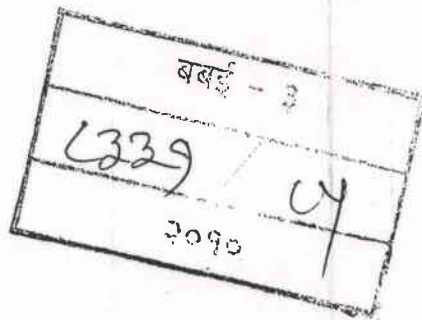 बबई - ३
८३३९ / ५
२०१०